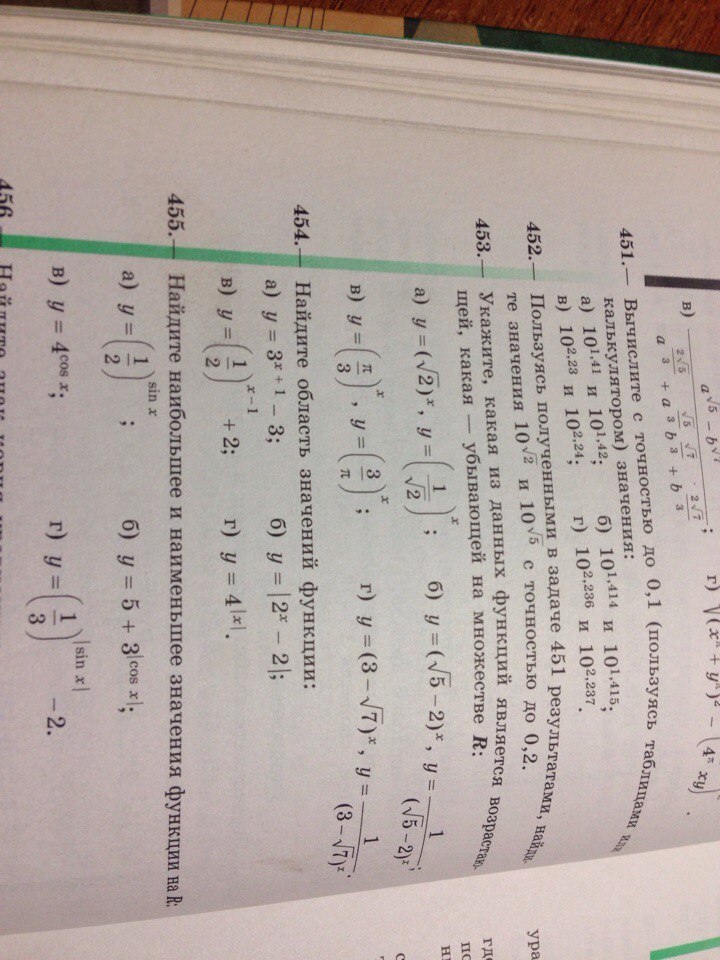 в) a^√5 − b^√7 / a^(2√5/3) + a^(√5/3) b^(√7/3) + b^(2√7/3) ; г) √((x^π + y^π)² − (4^(1/π) xy)^π) .
451.— Вычислите с точностью до 0,1 (пользуясь таблицами или
калькулятором) значения:
а) 10^1,41 и 10^1,42; б) 10^1,414 и 10^1,415;
в) 10^2,23 и 10^2,24; г) 10^2,236 и 10^2,237.
452.— Пользуясь полученными в задаче 451 результатами, найди-
те значения 10^√2 и 10^√5 с точностью до 0,2.
453.— Укажите, какая из данных функций является возрастаю-
щей, какая — убывающей на множестве R:
а) y = (√2)^x, y = (1/√2)^x; б) y = (√5 − 2)^x, y = 1/(√5 − 2)^x;
в) y = (π/3)^x, y = (3/π)^x; г) y = (3 − √7)^x, y = 1/(3 − √7)^x.
454.— Найдите область значений функции:
а) y = 3^(x + 1) − 3; б) y = |2^x − 2|;
в) y = (1/2)^(x−1) + 2; г) y = 4^|x|.
455.— Найдите наибольшее и наименьшее значения функции на R:
а) y = (1/2)^(sin x); б) y = 5 + 3^|cos x|;
в) y = 4^(cos x); г) y = (1/3)^|sin x| − 2.
456.— Найдите знак корня
ура
где
по